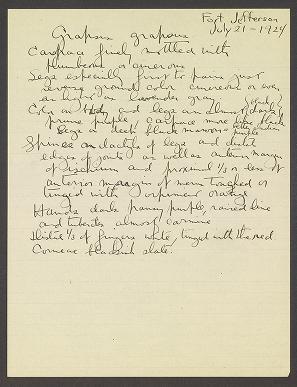 Fort Jefferson
July 21 - 1924
Grapsus grapsus
Carapace finely mottled with
plumbeous or cinereous
Legs especially first to pairs just
reverse ground color cinereous or even
as light as lavender gray
Color on body and legs an almost dark
prune purple, carapace more like black
legs a deep black maroon
Indian purple
Spines on dactyls of legs and distal
edges of joints as well as anterior margin
of ischium and proximal 1/3 or less of
anterior margin of merus touched or
tinged with orpiment orange
Hands dark pansy purple, raised line
and tubercles almost carmine
Distal 1/3 of fingers white, tinged with the red
Corneae blackish slate.